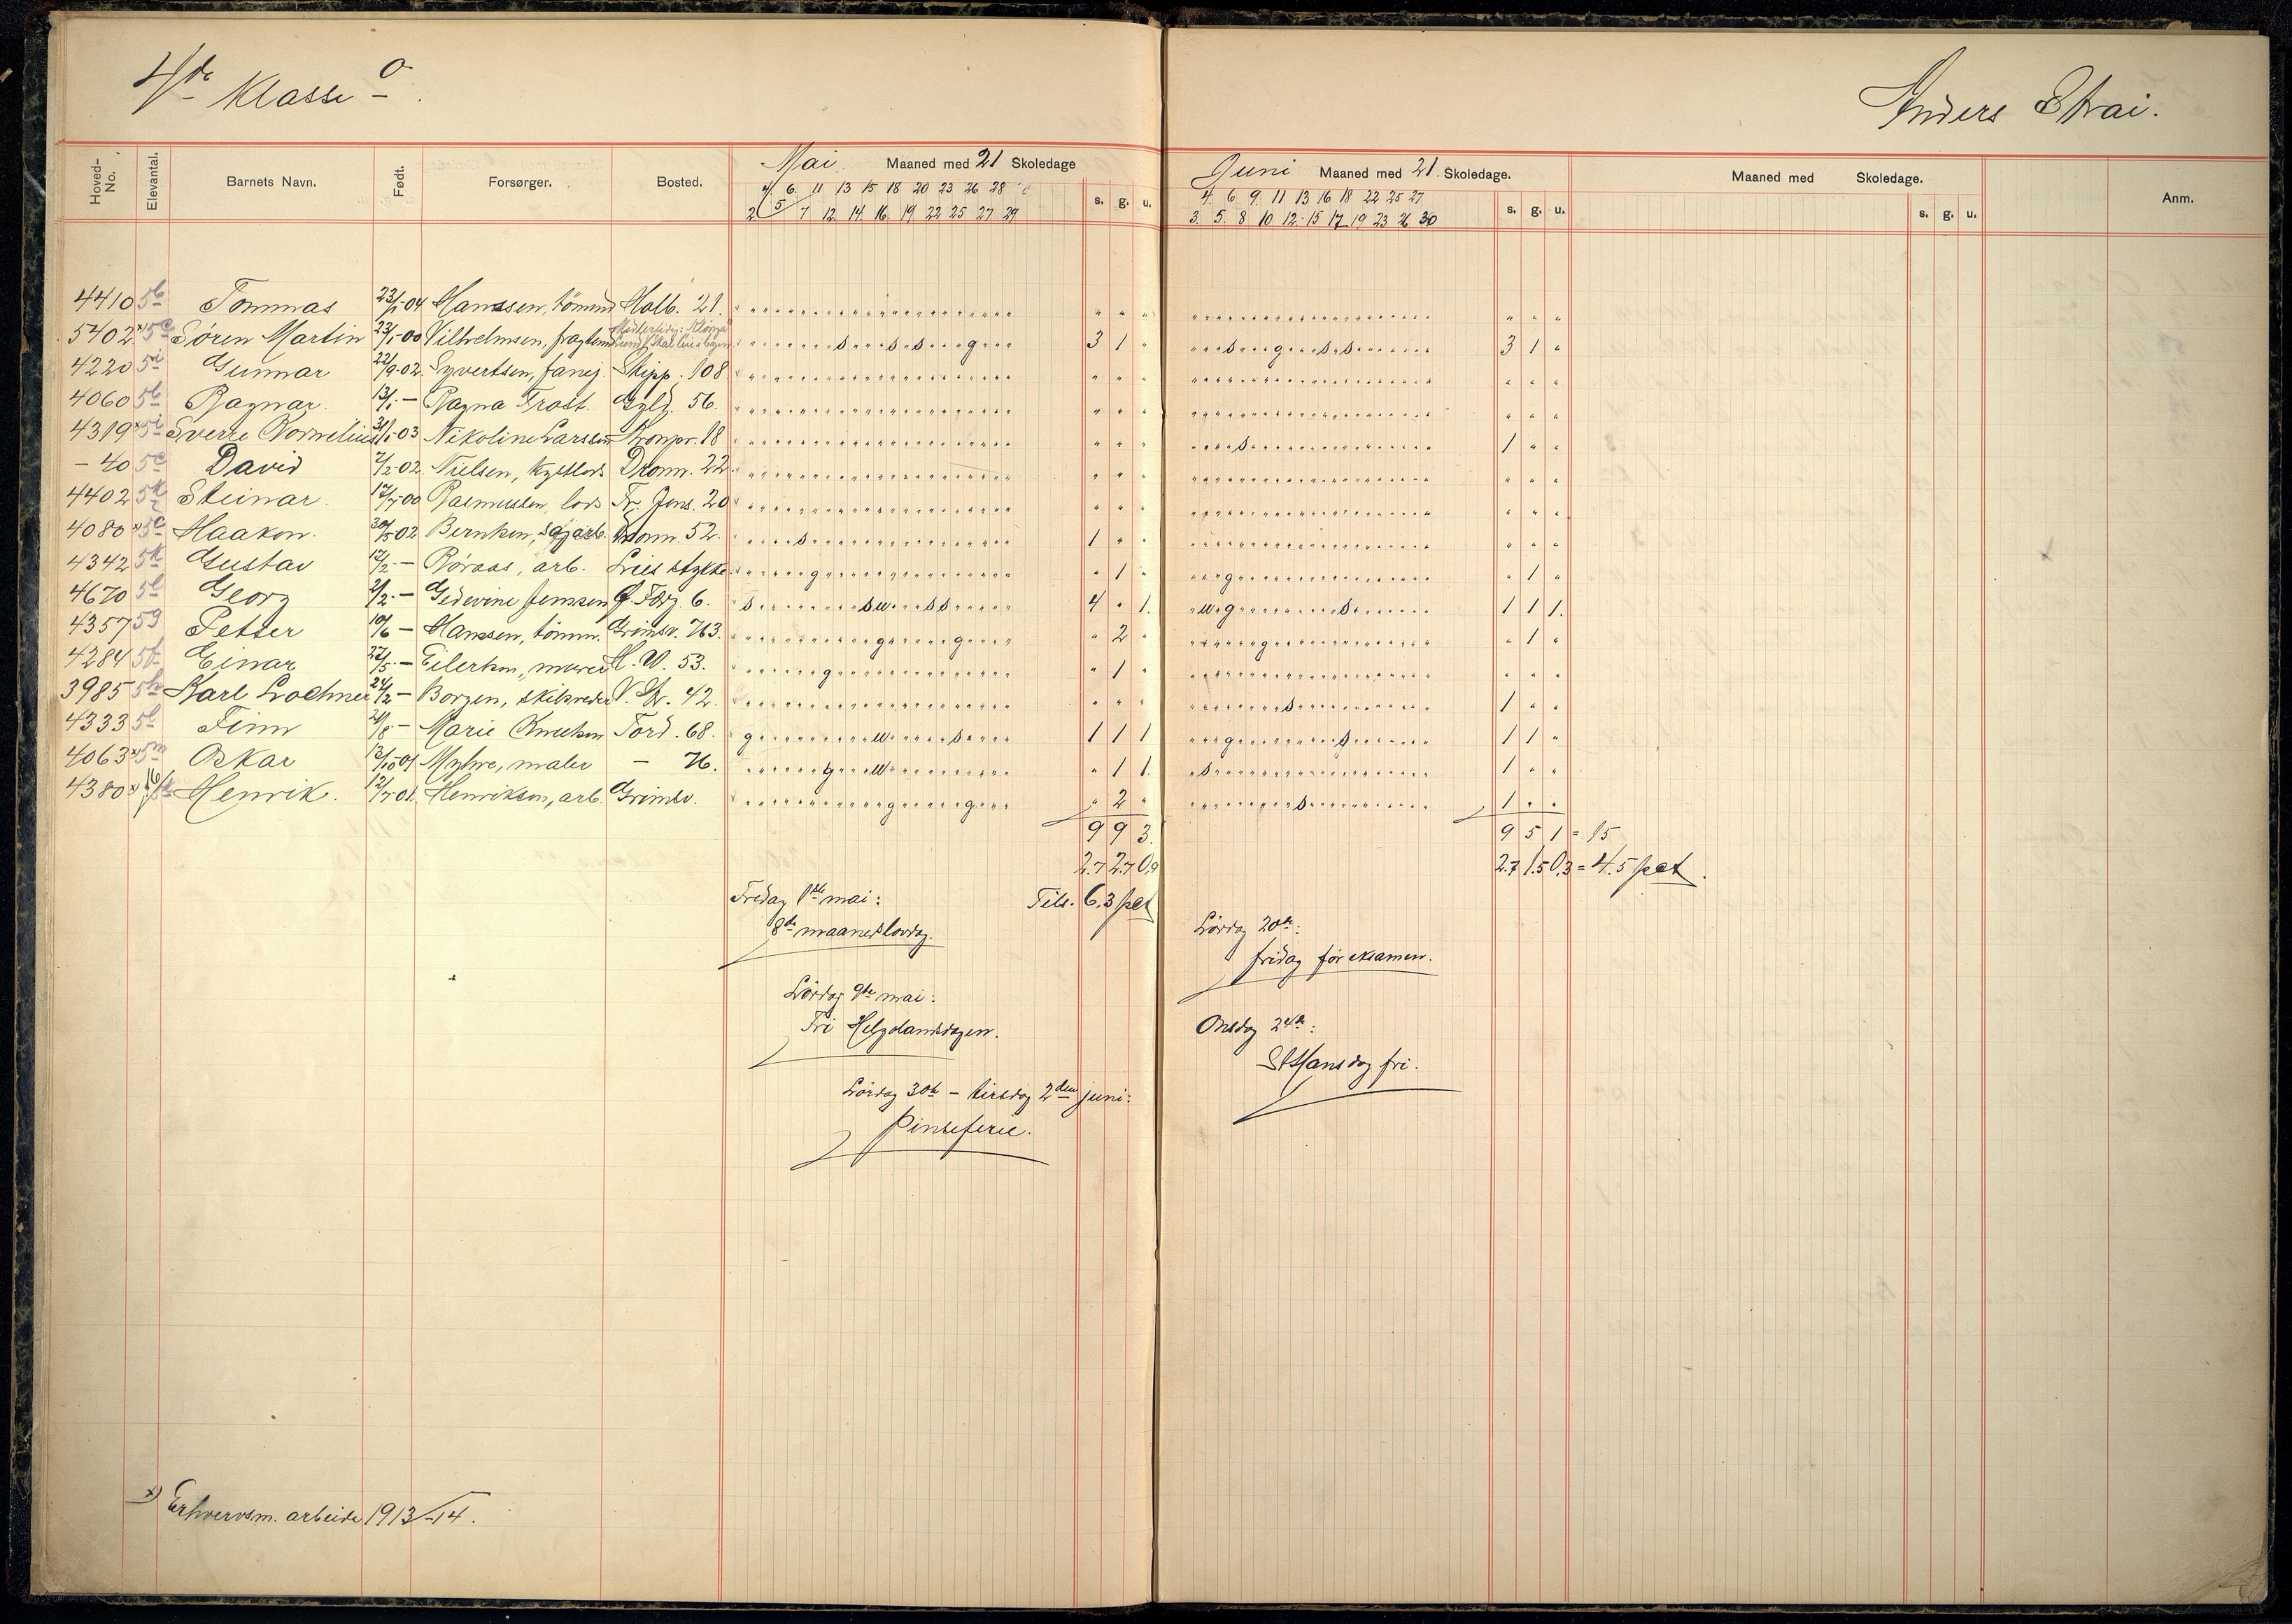 4de Klasse O.
Anders Strai.
Hoved-No. Elevantal. Barnets Navn. Født. Forsørger. Bosted. Mai Maaned med 21 Skoledage s. g. u.
4 6. 11 13 15 18 20 23 26 28
2 5 7 12. 14. 16. 19 22 25 27 29
Juni Maaned med 21. Skoledage. s. g. u. Maaned med Skoledage. s. g. u. Anm.
4. 6 9. 11 13 16 18 22 25 27
3. 5. 8 10 12. 15 17 19 23 26 30
4410 5b Tommas 23/1-04 Hanssen, tömm Holb. 21. " " " " " "
5402 x) 5c Søren Martin 23/1-00 Vilhelmsen, s s s g 3 1 " s g s s 3 1 "
4220 5i Gunnar 22/9-02. Syvertsen, Skipp. 108 " " " " " "
4060 5b Ragnar 13/1 - Ragna Frost. Gyld. 56. " " " " " "
4319 x) 5i Sverre Kornelius 31/1-03 Nikoline Larssen Kronpr. 18 " " " s 1 " "
- 40 5c David 7/2-02. Nielsen, kystlods Dronn. 22. " " " " " "
4402 5k Steinar 17/7-00 Rasmussen, lods Fr. Jens. 20 " " " " " "
4080 x) 5c Haakon. 30/5 02 Berntsen, sagarb. Dronn. 52. s 1 " " " " "
4342 5k Gustav 12/2 - Röraas, arb. Lies stykke g " 1 " g " 1 "
4670 5l Georg 2/2 - Gedevine Jenssen 6. s s u s s 4 " 1. u g s 1 1 1.
4357 5g Petter 10/6 - Hanssen, tömm. Grimsv. 763. g g " 2 " g " 1 "
4284 5b Einar 27/5 - Eilertsen, murer H. W. 53. g " 1 " " " "
3985 5h Karl Lochner 24/2 - Borgen, V. Str. 42. " " " s 1 " "
4333 5l Finn /8 - Marie Knutsen Tord. 68. g u s 1 1 1 g s 1 1 "
4063 x) 5m Oskar 13/10 01 Myhre, maler - 76. g u " 1 1. s 1 " "
4380 x) Henrik. 12/7-01. Henriksen, arb. Grimsv. g g " 2 " s 1 " "
9 9 3. 9 5 1 = 15
2.7 2.7 0.9 2.7 1.5 0.3 = 4.5 pct.
Fredag 1ste mai: Tils. 6.3 pct
8de maanedslovdag.
Lördag 9de mai:
Fri Helgolandsdagen.
Lördag 30te - tirsdag 2den juni:
Pinseferie.
Lördag 20de:
fridag før eksamen.
Onsdag 24de:
St Hansdag fri.
x) Erhvervsm. arbeide 1913-14.